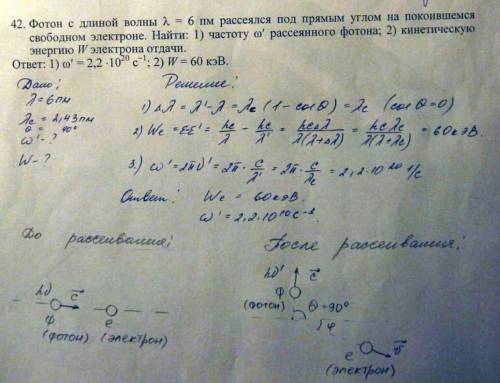 42. Фотон с длиной волны λ = 6 пм рассеялся под прямым углом на покоившемся
свободном электроне. Найти: 1) частоту ω′ рассеянного фотона; 2) кинетическую
энергию W электрона отдачи.
Ответ: 1) ω′ = 2,2 ·10²⁰ с⁻¹; 2) W = 60 кэВ.
Дано:
λ = 6 пм
λc = 2,43 пм
θ = 90°
ω′ - ?
W - ?
Решение:
1) Δλ = λ′ - λ = λc (1 - cosθ) = λc (cosθ = 0)
2) We = εε′ = hc/λ - hc/λ′ = hcΔλ/λ(λ+Δλ) = hcλc/λ(λ+λc) = 60кэВ
3) ω′ = 2πν′ = 2π · c/λ′ = 2π · c/λc = 2,2 · 10²⁰ 1/c
Ответ: We = 60кэВ.
ω′ = 2,2 · 10²⁰ c⁻²
До рассеивания:
hν c⃗
ф e
(фотон) (электрон)
После рассеивания:
hν′ c⃗
ф
(фотон) θ = 90°
φ
e v⃗
(электрон)